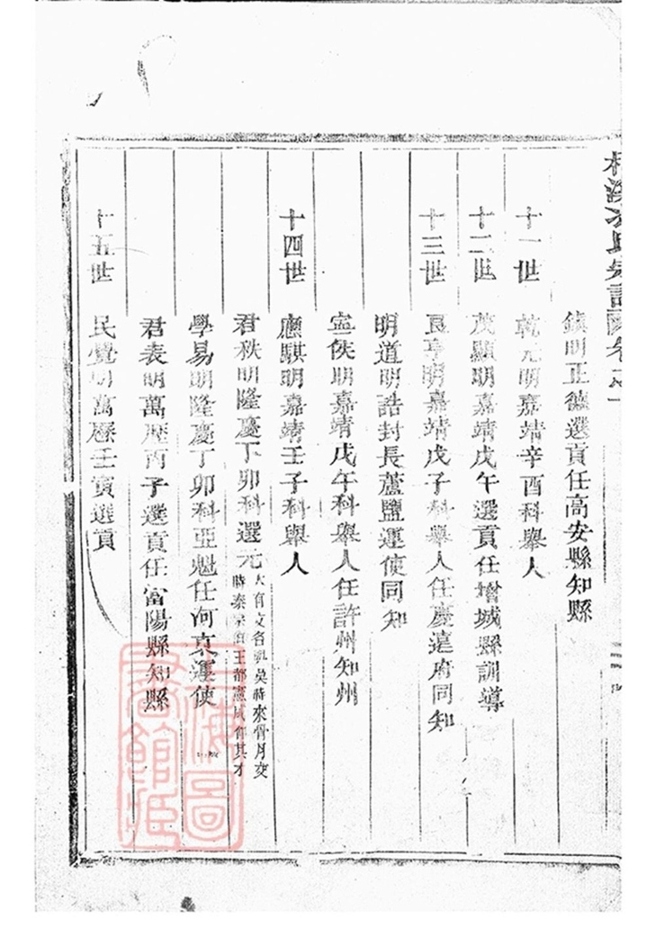 宗譜 卷之一
鎮明正德選貢任高安縣知縣
十一世 乾元明嘉靖辛酉科舉人
十二世 茂顯明嘉靖戊午選貢任增城縣訓導
十三世 良亨明嘉靖戊子科舉人任慶遠府同知
明道明誥封長蘆鹽運使同知
宣侯明嘉靖戊午科舉人任許州知州
十四世 應騏明嘉靖壬子科舉人
君秩明隆慶丁卯科選元 大有文名 來 月交
時秦 王都憲 其才
學易明隆慶丁卯科亞魁任河東運使
君表明萬歷丙子選貢任富陽縣知縣
十五世 民覺明萬歷壬寅選貢
上海圖書館藏